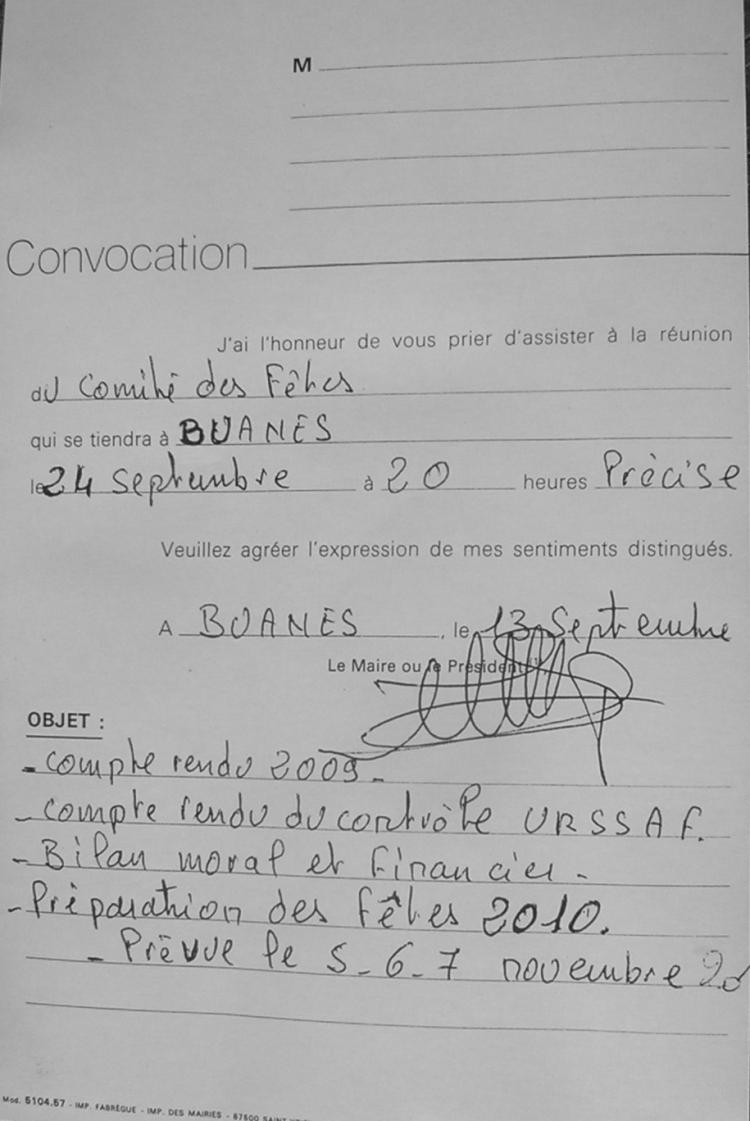 M
Convocation
J'ai l'honneur de vous prier d'assister à la réunion
du Comité des Fêtes
qui se tiendra à BUANES
le 24 septembre à 20 heures Précise
Veuillez agréer l'expression de mes sentiments distingués.
A BUANES, le 13 Septembre
Le Maire ou le Président
OBJET :
- Compte rendu 2009 -
- Compte rendu du contrôle URSSAF.
- Bilan moral et Financier -
- Préparation des fêtes 2010.
- Prévue le 5-6-7 novembre
Mod. 5104.57 - IMP. FABRÈGUE - IMP. DES MAIRIES - 87500